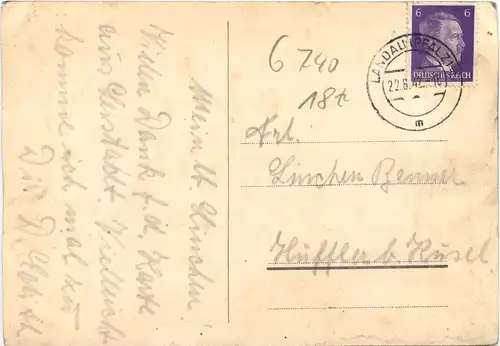 Mein lb. Linchen!
Vielen Dank f. d. Karte
aus Vielleicht
komme ich mal zu
Dir D.
6 740
18
6 6
DEUTSCHES REICH
LANDAU (PFALZ)
22.6.42
m
Frl.
Linchen Benner
Hüffler b. Kusel